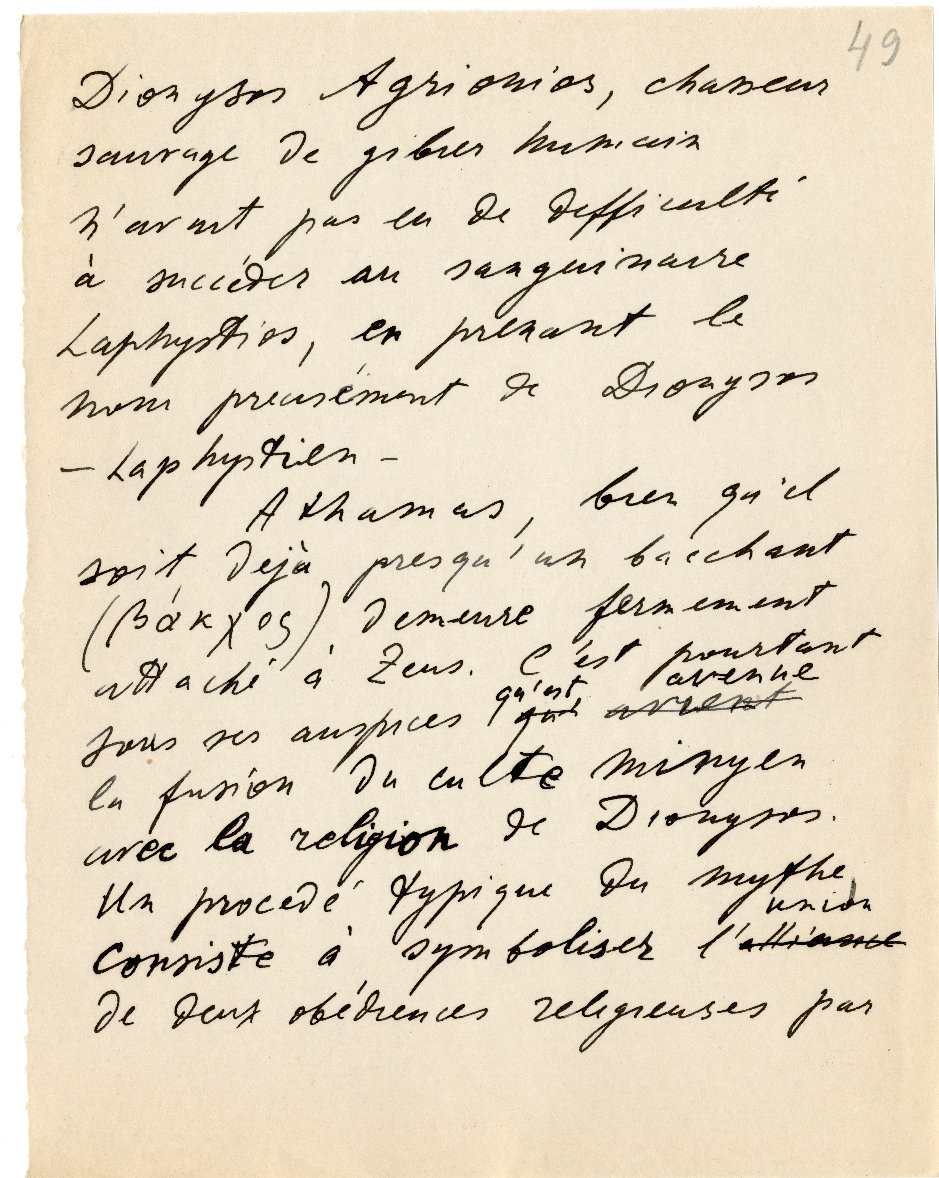 49
Dionysos Agrionios, chasseur
sauvage de gibier humain
n'avait pas eu de difficulté
à succéder au sanguinaire
Laphystios, en prenant le
nom precisément de Dionysos
- Laphystien -
Athamas, bien qu'il
soit déjà presqu'un bacchant
(βάκχος) demeure fermement
attaché à Zeus. C'est pourtant
qu'est avenue
sous ses auspices qui avient
la fusion du culte minyen
avec la religion de Dionysos.
Un procedé typique du mythe
union
consiste à symboliser l'alliance
de deux obédiences religieuses par